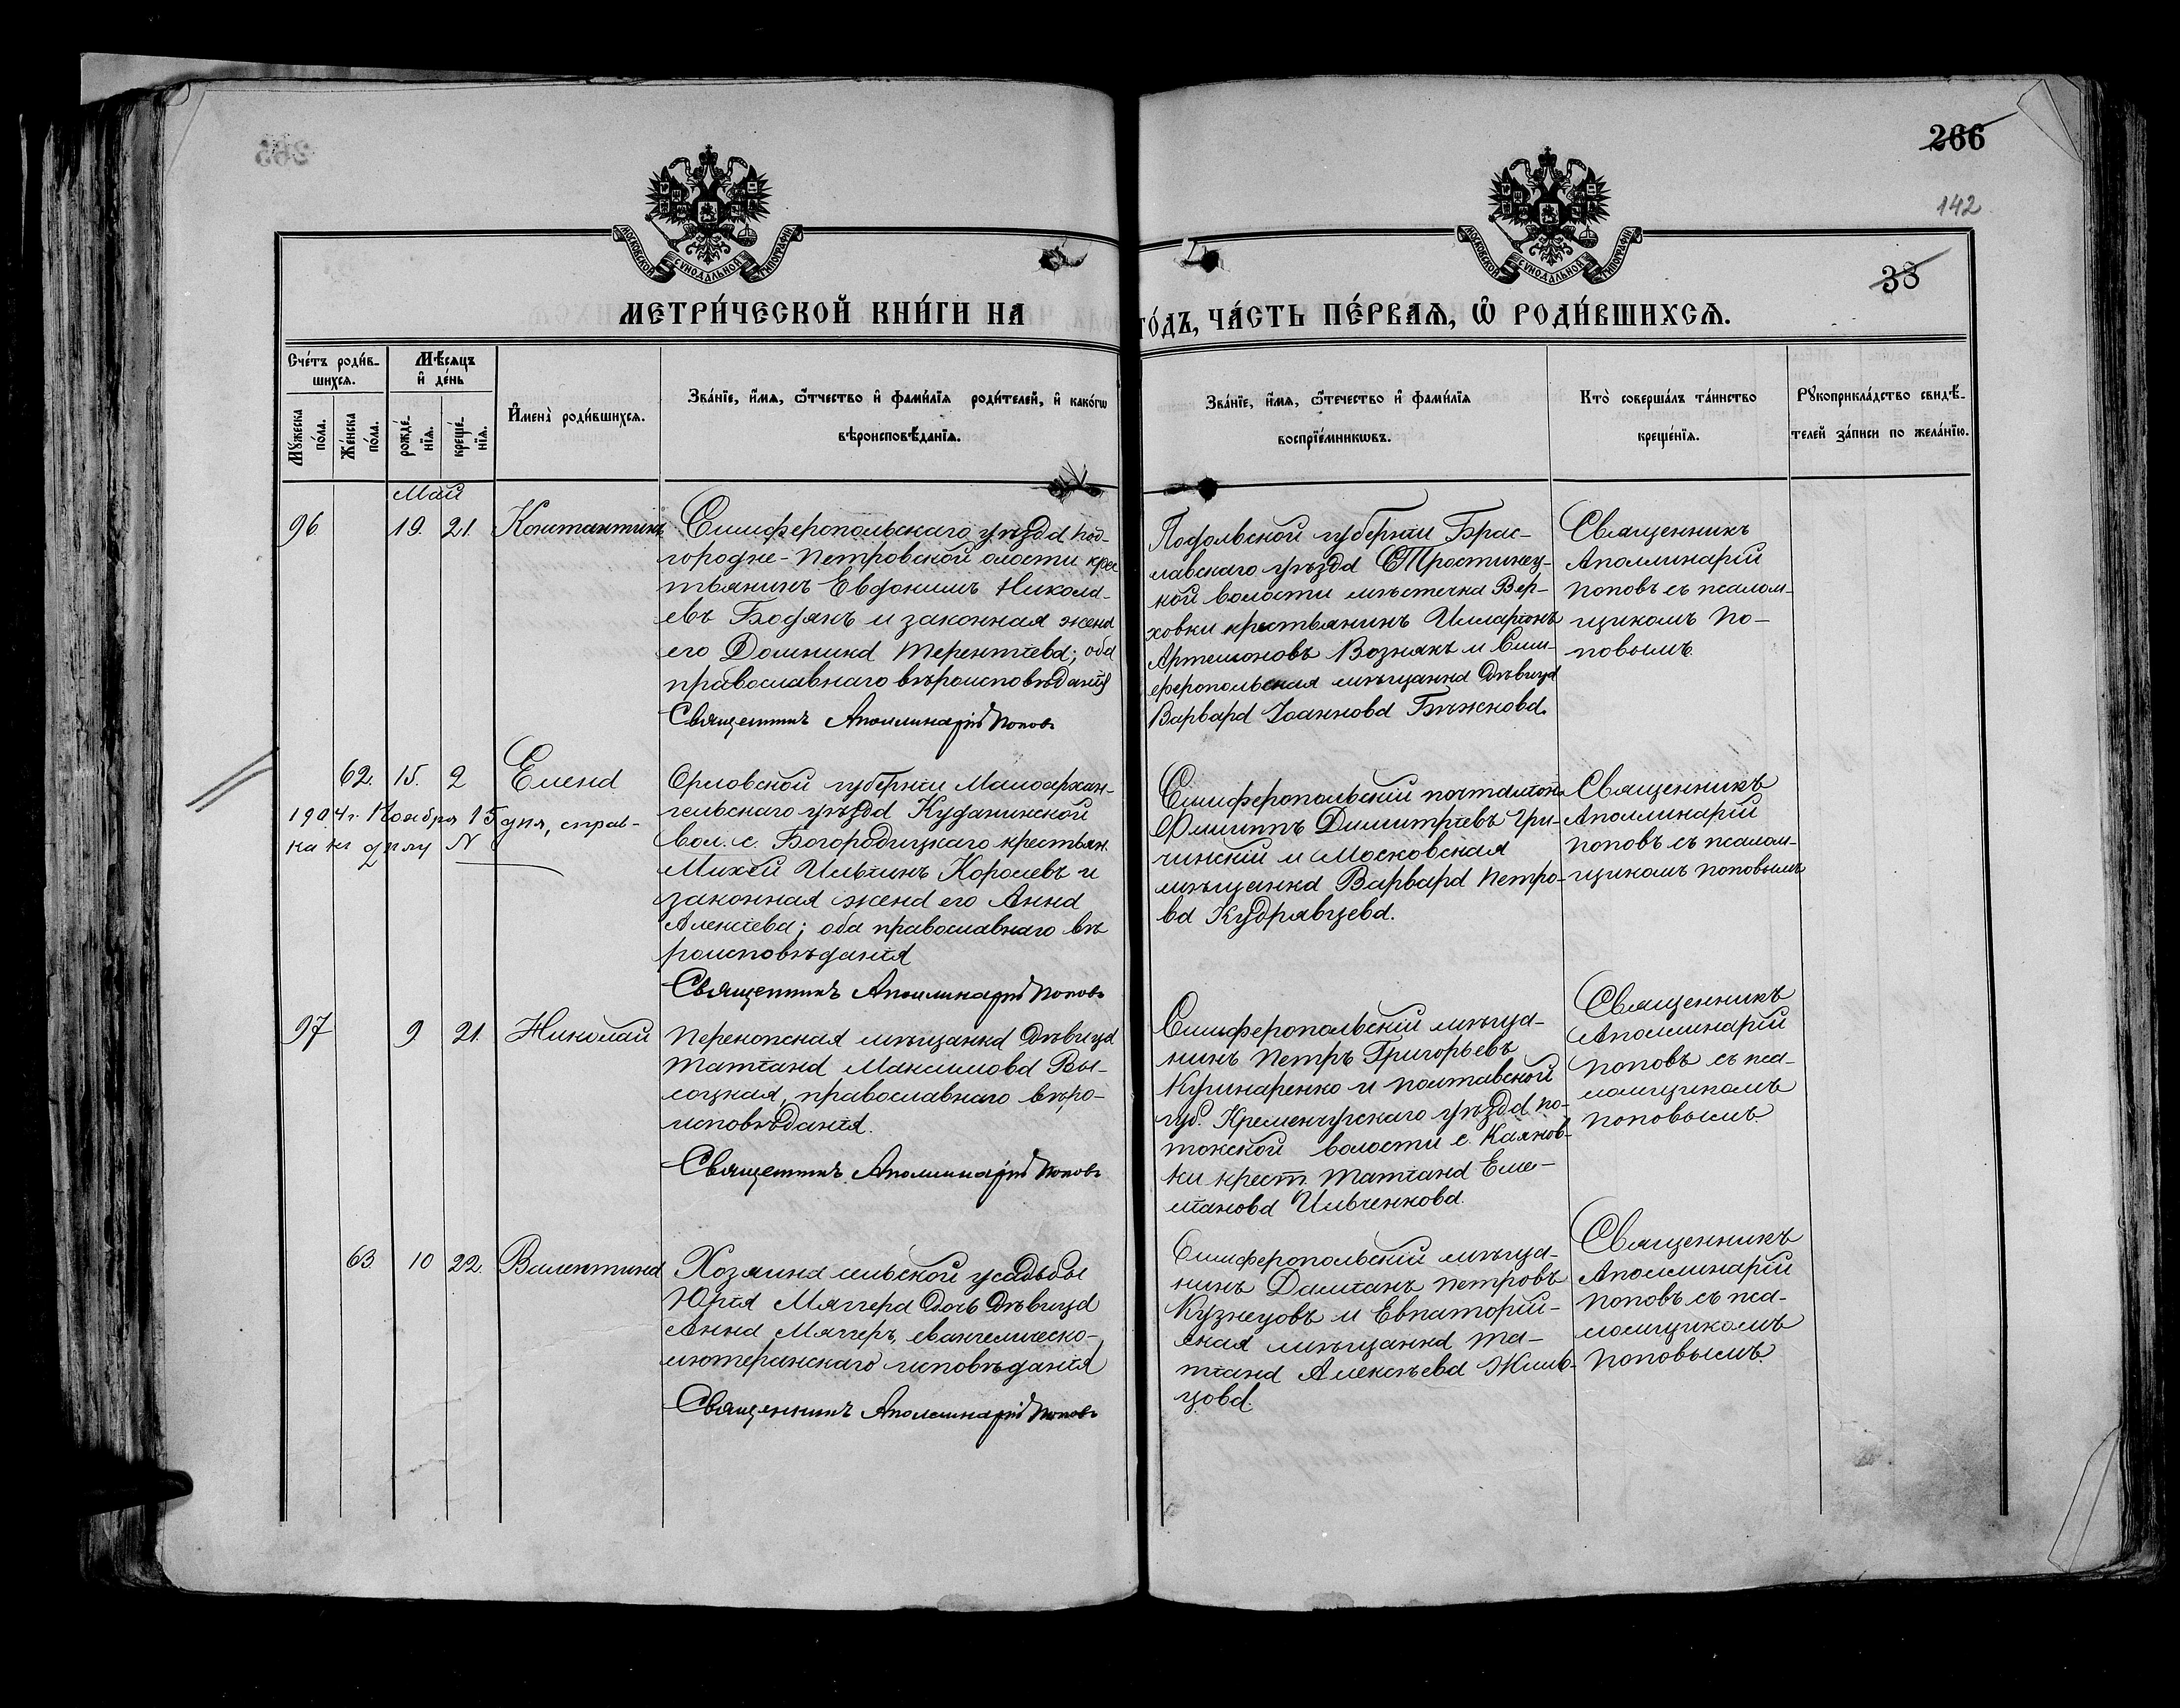 266
142
38
МОСКОВСКОЙ СѴНОДАЛЬНОЙ ТИПОГРАФІИ
МОСКОВСКОЙ СѴНОДАЛЬНОЙ ТИПОГРАФІИ
МЕТРИ́ЧЕСКОЙ КНИ́ГИ НА
ГО́ДЪ, ЧА́СТЬ ПЕ́РВАѦ, Ѡ҆ РОДИ́ВШИХСѦ.
Сче́тъ роди́в-
шихсѧ.
Мꙋ́жеска
по́ла.
Же́нска
по́ла.
Мѣ́сѧцъ
и҆ де́нь
рожде́-
нїѧ.
креще́-
нїѧ.
И҆мена̀ роди́вшихсѧ.
Зва́нїе, и҆́мѧ, ѻ҆́тчество и҆ фами́лїѧ роди́телей, и҆ како́гѡ
вѣроисповѣ́данїѧ.
Зва́нїе, и҆́мѧ, ѻ҆те́чество и҆ фами́лїѧ
воспрїе́мникѡвъ.
Кто̀ соверша́лъ та́инство
креще́нїѧ.
Рꙋкоприкла́дство свидѣ́-
телей за́писи по жела́нїю.
Май
96 19. 21. Константинъ
Симферопольскаго уѣзда Под-
городне-Петровской олости крес
тьянинъ Евдокимъ Никола-
евъ Бодякъ и законная жена
его Домника Терентіева; оба
православнаго вѣроисповѣданія
Священникъ Аполлинарій Поповъ
Подольской губерніи Брас-
лавскаго уѣзда Тростинец-
кой волости мѣстечка Вер-
ховки крестьянинъ Иларіонъ
Артемоновъ Вознякъ и Сим-
феропольская мѣщанка дѣвица
Варвара Іоаннова Бѣжнова.
Священникъ
Аполлинарій
Поповъ съ псалом-
щикомъ По-
повымъ.
62. 15. 2 Елена
1904 г. Ноября 15 дня, справ-
ка къ дѣлу N
Орловской губерніи Малоархан-
гельскаго уѣзда Куданинской
вол. с. Богородицкаго крестьян.
Михей Ильинъ Королевъ и
законная жена его Анна
Алексіева; оба православнаго вѣ
роисповѣданія
Священникъ Аполлинарій Поповъ
Симферопольскій почталіонъ
Филиппъ Димитріевъ Гри-
чинскій и Московская
мѣщанка Варвара Петро-
ва Кудрявцева.
Священникъ
Аполлинарій
Поповъ съ псалом-
щикомъ Поповымъ
97 9 21. Николай
Перекопская мѣщанка дѣвица
Татіана Максимова Вы-
соцкая, православнаго вѣро-
исповѣданія.
Священникъ Аполлинарій Поповъ
Симферопольскій мѣща-
нинъ Петръ Григорьевъ
Кушнаренко и Полтавской
губ. Кременчугскаго уѣзда По-
токской волости с. Каянов-
ки крест. Татіана Еме-
ліанова Ильченкова.
Священникъ
Аполлинарій
Поповъ съ пса-
ломщикомъ
Поповымъ.
63 10 22. Валентина
Хозяина сельской усадьбы
Юрія Мяггера дочь дѣвица
Анна Мяггеръ, евангелическо-
лютеранскаго исповѣданія
Священникъ Аполлинарій Поповъ
Симферопольскій мѣща-
нинъ Даміанъ Петровъ
Кузнецовъ и Евпаторій-
ская мѣщанка Та-
тіана Алексѣева Жиль-
цова.
Священникъ
Аполлинарій
Поповъ съ пса-
ломщикомъ
Поповымъ.